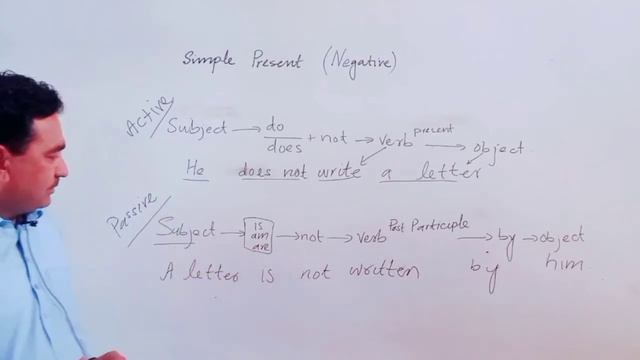 Simple Present (Negative)
Active/ Subject → do/does + not → verb present → object
He does not write a letter
Passive/ Subject → is am are → not → verb Past Participle → by → object
A letter is not written by him